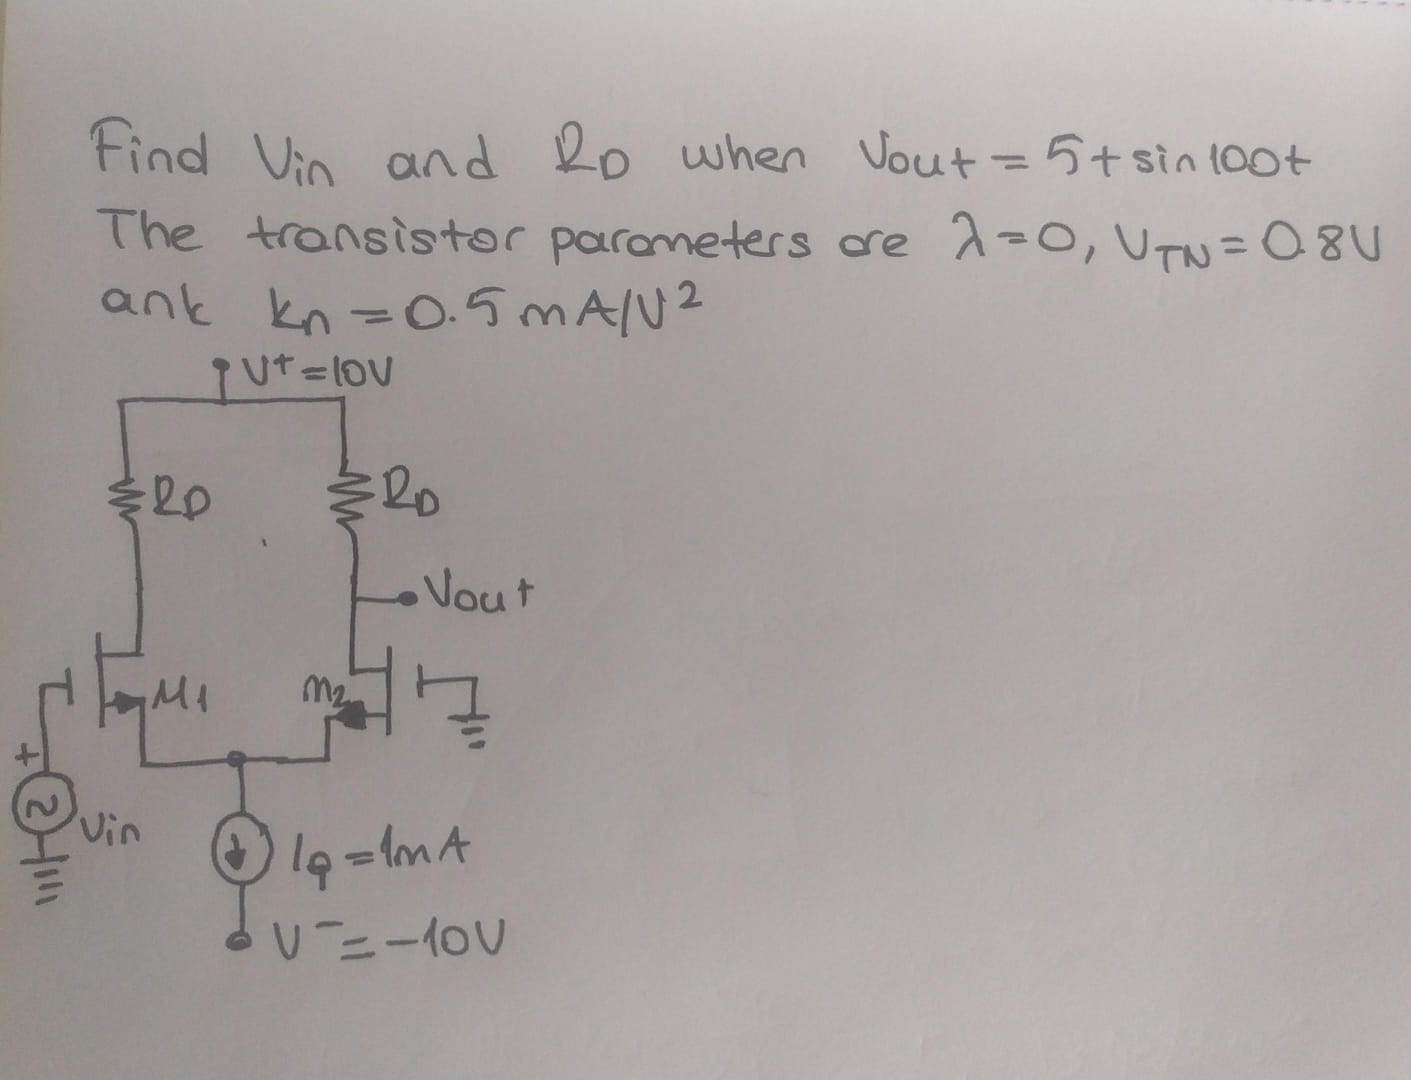 Find Vin and RD when Vout = 5 + sin 100t
The transistor parameters are λ=0, VTN = 0.8V
ank kn = 0.5 mA/V²
V+ = 10V
RD
RD
Vout
M1
M2
+
Vin
IQ = 1mA
V- = -10V